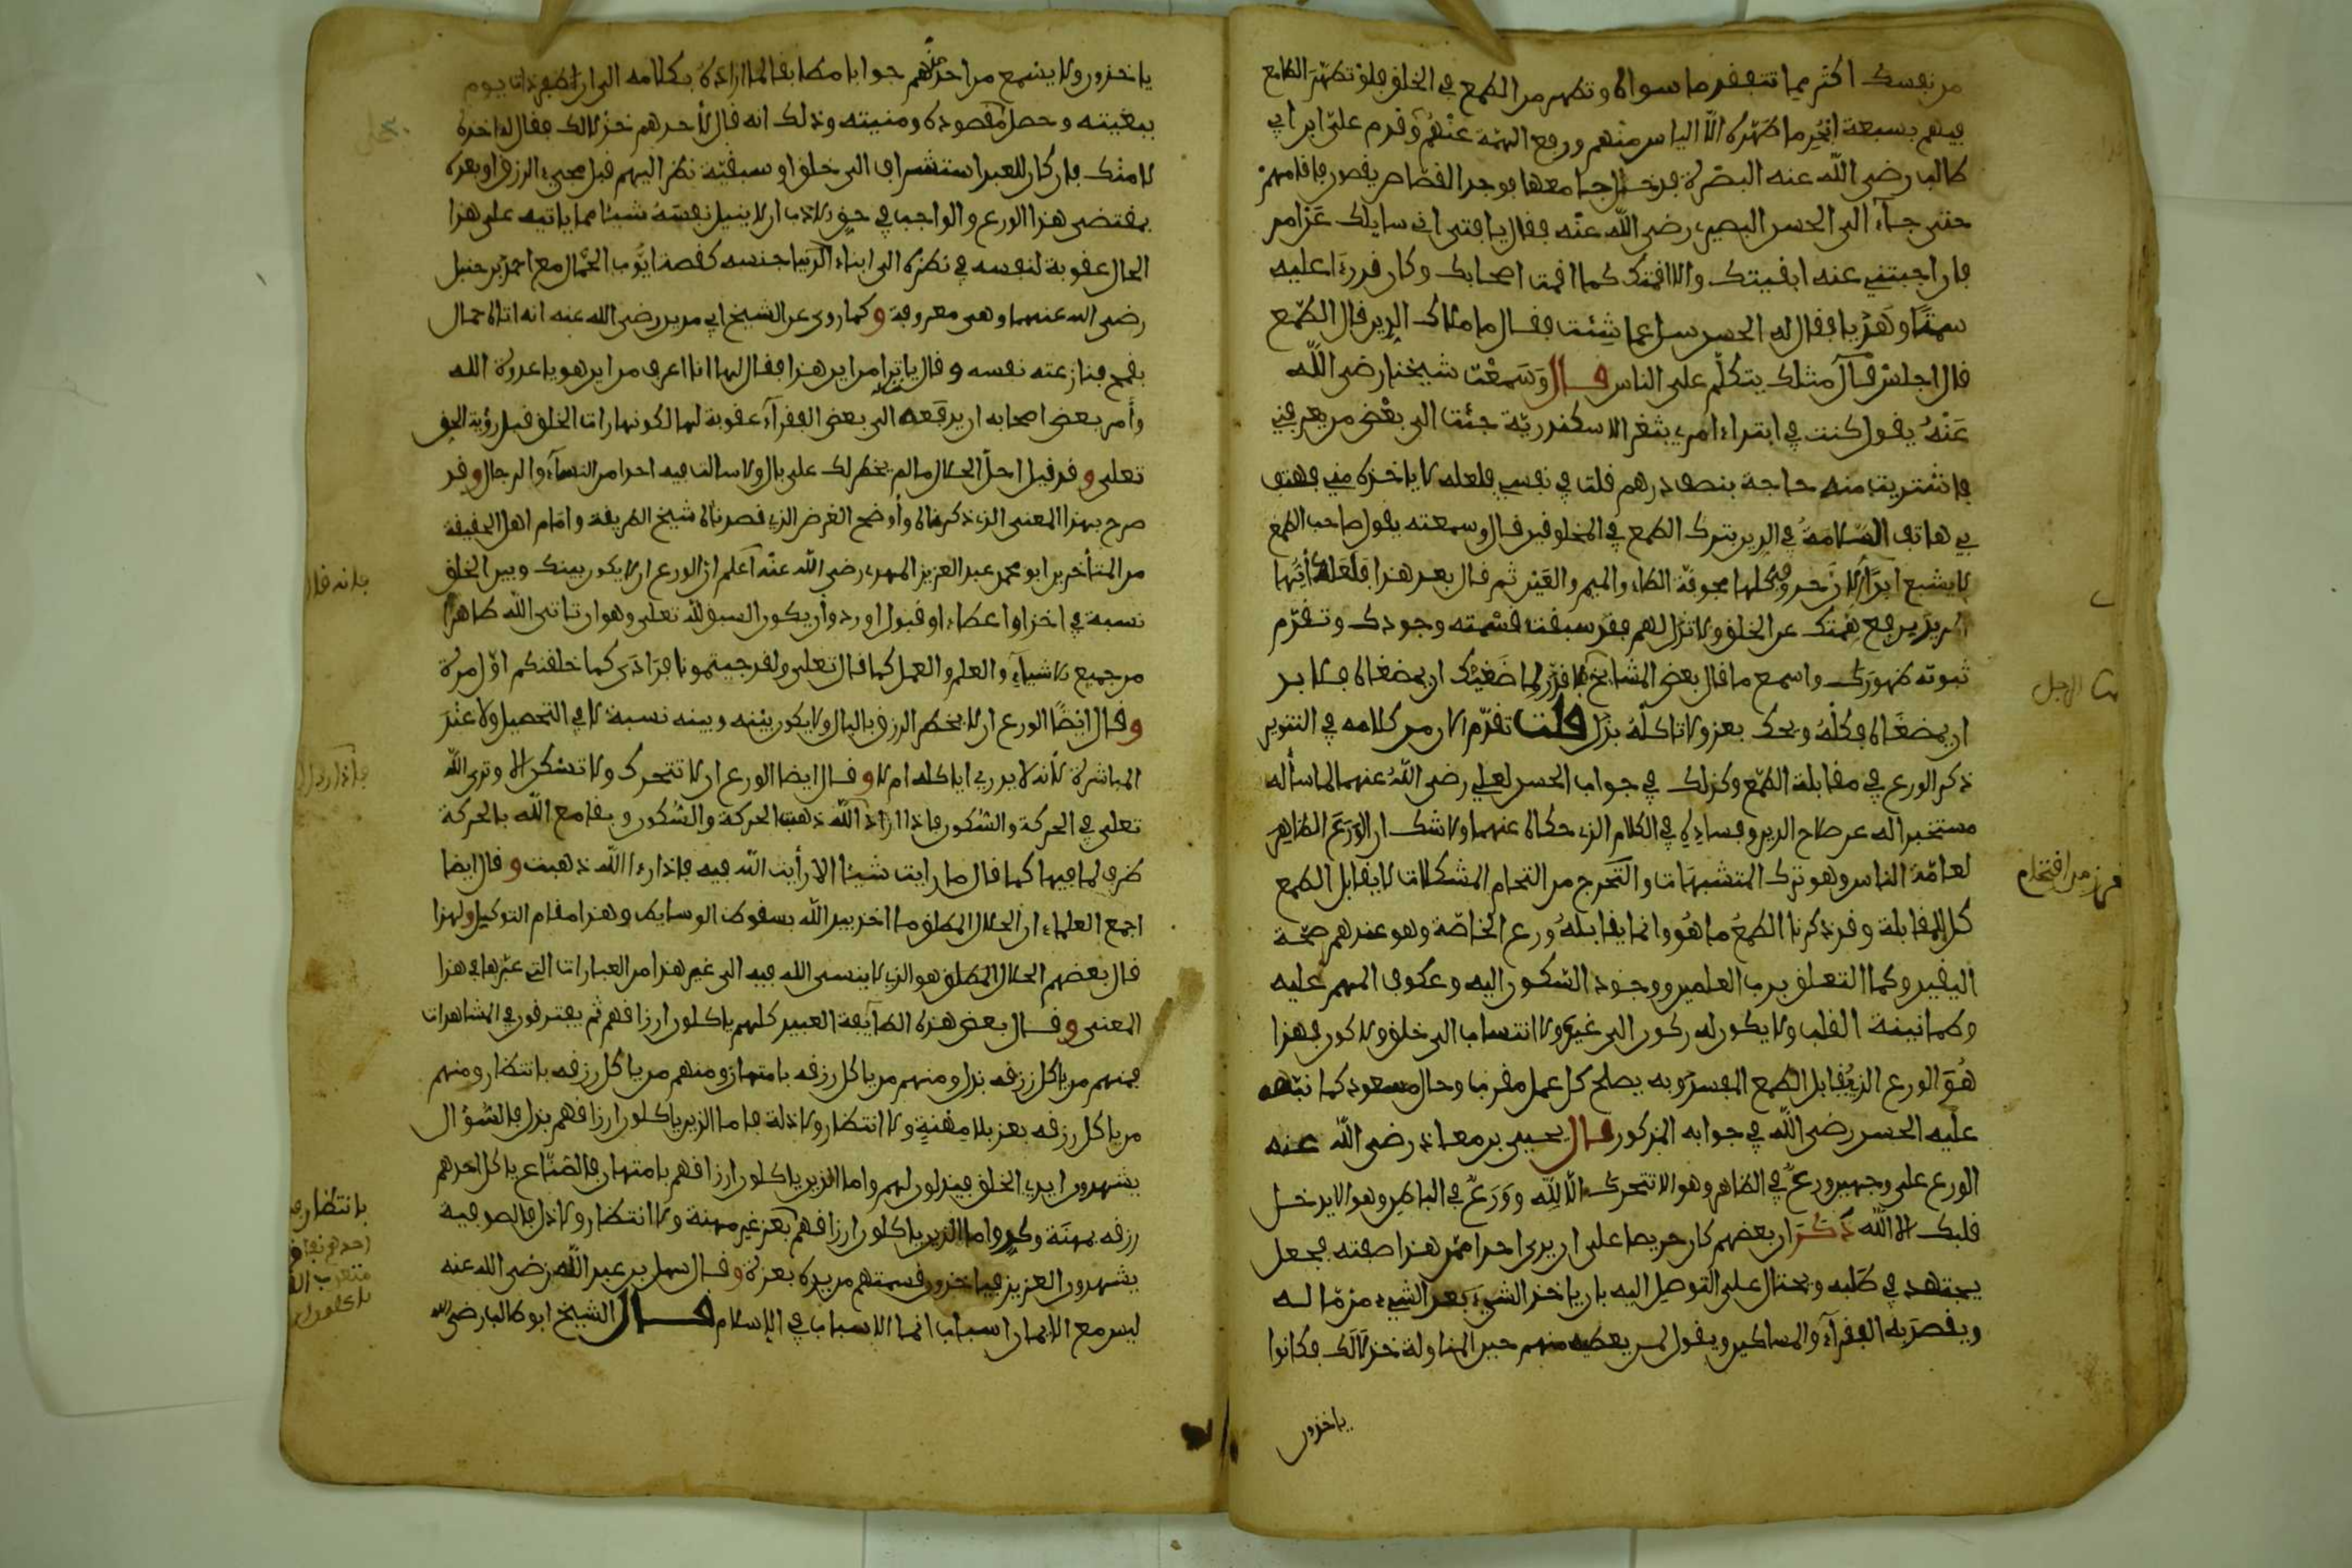 من نفسك اكثر مما تتفقد ما سواه وتطهر من الطمع في الخلق فلو تطهّر الطامع
فيهم بسبعة ابحر ما طهّره الّا الياس منهم ورفع الهمّة عنهم وقدم عليّ ابن ابي
طالب رضي الله عنه البصرة فدخل جامعها فوجد القصّاص يقصون فاقامهم
حتى جاء الى الحسن البصري رضي الله عنه فقال يا فتى اني سايلك عن امر
فان اجبتني عنه ابقيتك والا اقمتك كما اقمت اصحابك وكان قد رءا عليه
سمتا وهديا فقال له الحسن سل عما شئت فقال ما ملاك الدين قال الورع قال فما فساد الدين قال الطمع
قال اجلس فمثلك يتكلّم على الناس قال وسمعت شيخنا رضي الله
عنه يقول كنت في ابتداء امري بثغر الاسكندريّة جئت الى بعض من يعرفني
فاشتريت منه حاجة بنصف درهم قلت في نفسي فلعله لا ياخذه مني فهتف
بي هاتف السّلامة في الدين بترك الطمع في المخلوقين قال وسمعته يقول صاحب الطمع
لا يشبع ابدا لان حروفه كلها مجوفّة الطاء والميم والعين ثم قال بعد هذا فعليك أيّها
المريد برفع همّتك عن الخلق ولا تذل لهم فقد سبقت قسمته وجودك وتقدّم
ثبوته ظهورك واسمع ما قال بعض المشايخ ما قدّر لماضغيك ان يمضغاه فلا بد
ان يمضغاه فكله ويحك بعز ولا تاكله بذل قلت تقدّم الان من كلامه في التنوير
ذكر الورع في مقابلة الطمع وكذلك في جواب الحسن لعلي رضي الله عنهما لما سأله
مستخبرا له عن صلاح الدين وفساده في الكلام الذي حكاه عنهما ولا شك ان الورع الظاهر
لعامّة الناس وهو ترك المتشبهات والتحرج من التحام المشكلات لا يقابل الطمع
كل المقابلة وقد ذكرنا الطمع ما هو وانما يقابله ورع الخاصّة وهو عندهم صحّة
اليقين وكمال التعلق برب العلمين ووجود السّكون اليه وعكوف الهمم عليه
وطمانينة القلب ولا يكون له ركون الى غير ولا انتساب الى خلق ولا كون فهذا
هو الورع الذي يقابل الطمع المفسد وبه يصلح كل عمل مقرب وحال مسعود كما نبّه
عليه الحسن رضي الله في جوابه المذكور قال يحيى بن معاذ رضي الله عنه
الورع على وجهين ورع في الظاهر وهو الا تتحرك الّا للّه وورع في الباطن وهو الا يدخل
قلبك الا اللّه ذكر ان بعضهم كان حريصا على ان يرى احدا ممن هذا صفته فجعل
يجتهد في طلبه ويحتال على التوصل اليه بان ياخذ الشيء بعد الشيء من ماله
ويقصد به الفقراء والمساكين ويقول لمن يعطيه منهم حين المناولة خذ لا لك فكانوا
ياخذون
ياخذون ولا يسمع من احد منهم جوابا مطابقا لما اراده بكلامه الى ان ظفر ذات يوم
ببغيته وحصل مقصوده ومنيته وذلك انه قال لأحدهم خذ لا لك فقال له اخذه
لا منك فان كان للعبد استشراف الى خلق او سبقيّة نظر اليهم قبل مجيء الرزق او بعده
بمقتضى هذا الورع والواجب في حق الادب ان لا ينيل نفسه شيئا مما ياتيه على هذا
الحال عقوبة لنفسه في نظره الى ابناء جنسه كقصة ايّوب الحمّال مع احمد بن حنبل
رضي الله عنهما وهي معروفة وكما روي عن الشيخ ابي مدين رضي الله عنه انه اتاه حمال
بقمح فنازعته نفسه وقال يا ترا من اين هذا فقال لها انا اعرف من اين هو يا عدوة الله
وأمر بعض اصحابه ان يدفعه الى بعض الفقراء عقوبة لها لكونها رات الخلق قبل رؤية الحق
تعلى وقد قيل احلّ الحلال ما لم يخطر لك على بال ولا سالت فيه احدا من النسآء والرجال وقد
صرح بهذا المعنى الذي ذكرناه وأوضح الغرض الذي قصدناه شيخ الطريقة وامام اهل الحقيقة
من المتأخرين ابو محمد عبد العزيز المهدوي رضي الله عنه اعلم ان الورع ان لا يكون بينك وبين الخلق
نسبة في اخذ او اعطاء او قبول او رد وأن يكون السبق لله تعلى وهو ان تاتي الله طاهرا
من جميع الاشياء والعلم والعمل كما قال تعلى ولقد جيتمونا فرادى كما خلقنكم اوّل مرة
وقال ايضا الورع ان لا يخطر الرزق بالبال ولا يكون بينه وبينه نسبة لا في التحصيل ولا عند
المباشرة لأنه لا يدري اياكله ام لا وقال ايضا الورع ان لا تتحرك ولا تسكن الا وترى الله
تعلى في الحركة والسكون فاذا اراد الله ذهبت الحركة والسكون وبقا مع الله بالحركة
ظرف لما فيها كما قال ما رايت شيئا الا رأيت الله فيه فاذا رءا الله ذهبت وقال ايضا
اجمع العلماء ان الحلال المطلق ما اخذ بيد الله بسقوط الوسايط وهذا مقام التوكيل ولهذا
قال بعضهم الحلال المطلق هو الذي لا ينسى الله فيه الى غير هذا من العبارات التي عبّر بها في هذا
المعنى وقال بعض هذه الطايفة العبيد كلهم ياكلون ارزاقهم ثم يفترقون في المشاهدات
فمنهم من ياكل رزقه بذل ومنهم من ياكل رزقه بامتهان ومنهم من ياكل رزقه بانتظار ومنهم
من ياكل رزقه بعز بلا مهنة ولا انتظار ولا ذلة فاما الذين ياكلون ارزاقهم بذل فالسّؤال
يشهدون ايدي الخلق فيذلون لهم واما الذين ياكلون ارزاقهم بامتهان فالصنّاع ياكل احدهم
رزقه بمهنة وكد واما الذين ياكلون ارزاقهم بعز غير مهنة ولا انتظار ولا ذل فالصوفية
يشهدون العزيز فياخذون قسمتهم من يده بعزة وقال سهل بن عبد الله رضي الله عنه
ليس مع الايمان اسباب انما الاسباب في الاسلام قال الشيخ ابو طالب رضي الله
فانه قال
بانتظار